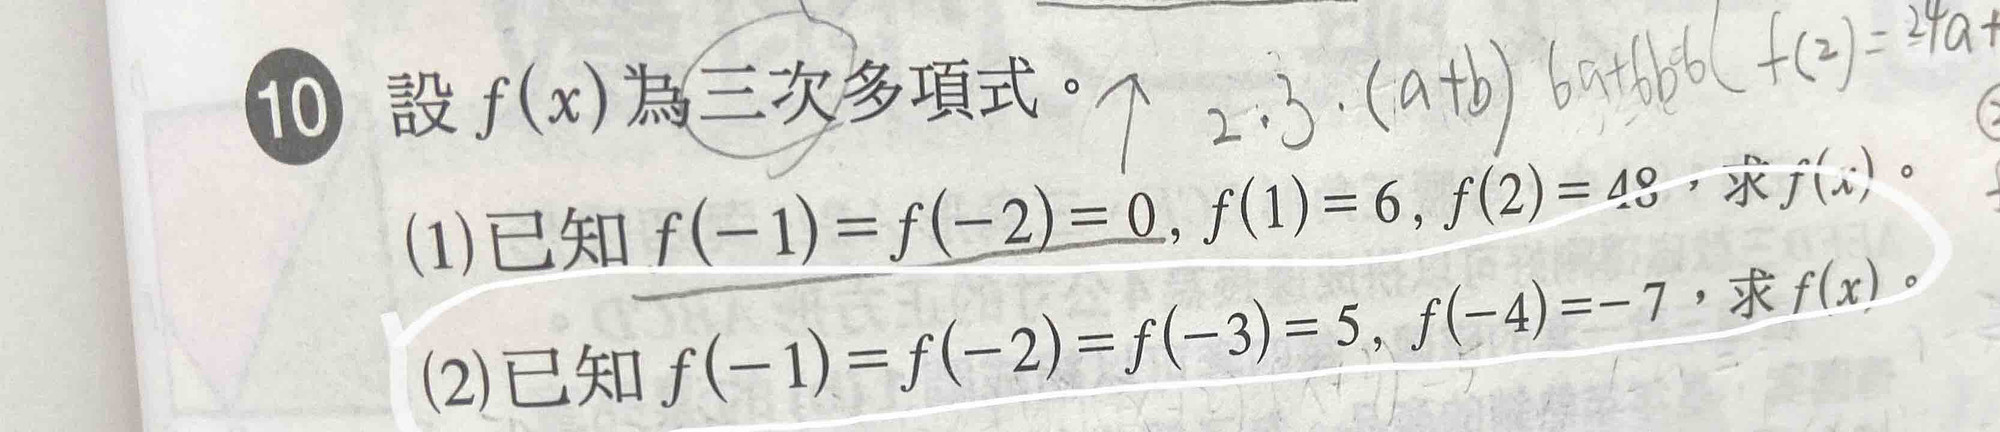 10 設 f(x) 為三次多項式。 2·3·(a+b) 6a+6b=6 f(2)=24a+
(1)已知 f(−1)=f(−2)=0, f(1)=6, f(2)=48,求 f(x)。
(2)已知 f(−1)=f(−2)=f(−3)=5, f(−4)=−7,求 f(x)。